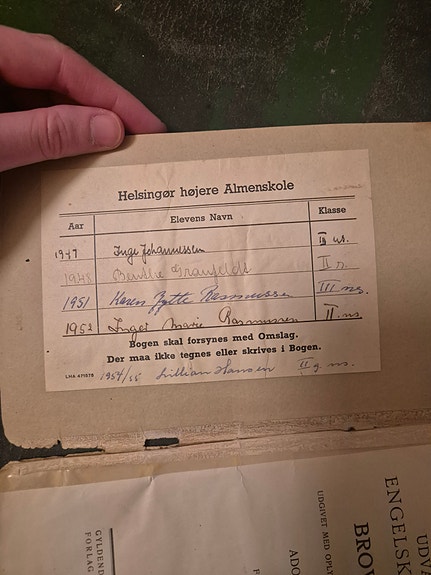 Helsingør højere Almenskole
Aar Elevens Navn Klasse
1947 Inge Johannessen
1948 Benthe Graufeldt II n.
1951 Karen Jytte Rasmussen III ns.
1952 Inger Marie Rasmussen II. ns
Bogen skal forsynes med Omslag.
Der maa ikke tegnes eller skrives i Bogen.
LHA 471578 1954/55 Lillian Hansen II g. ns.
UDVA
ENGELSK
BROW
UDGIVET MED OPLY
ADO
GYLDEND
FORLAG